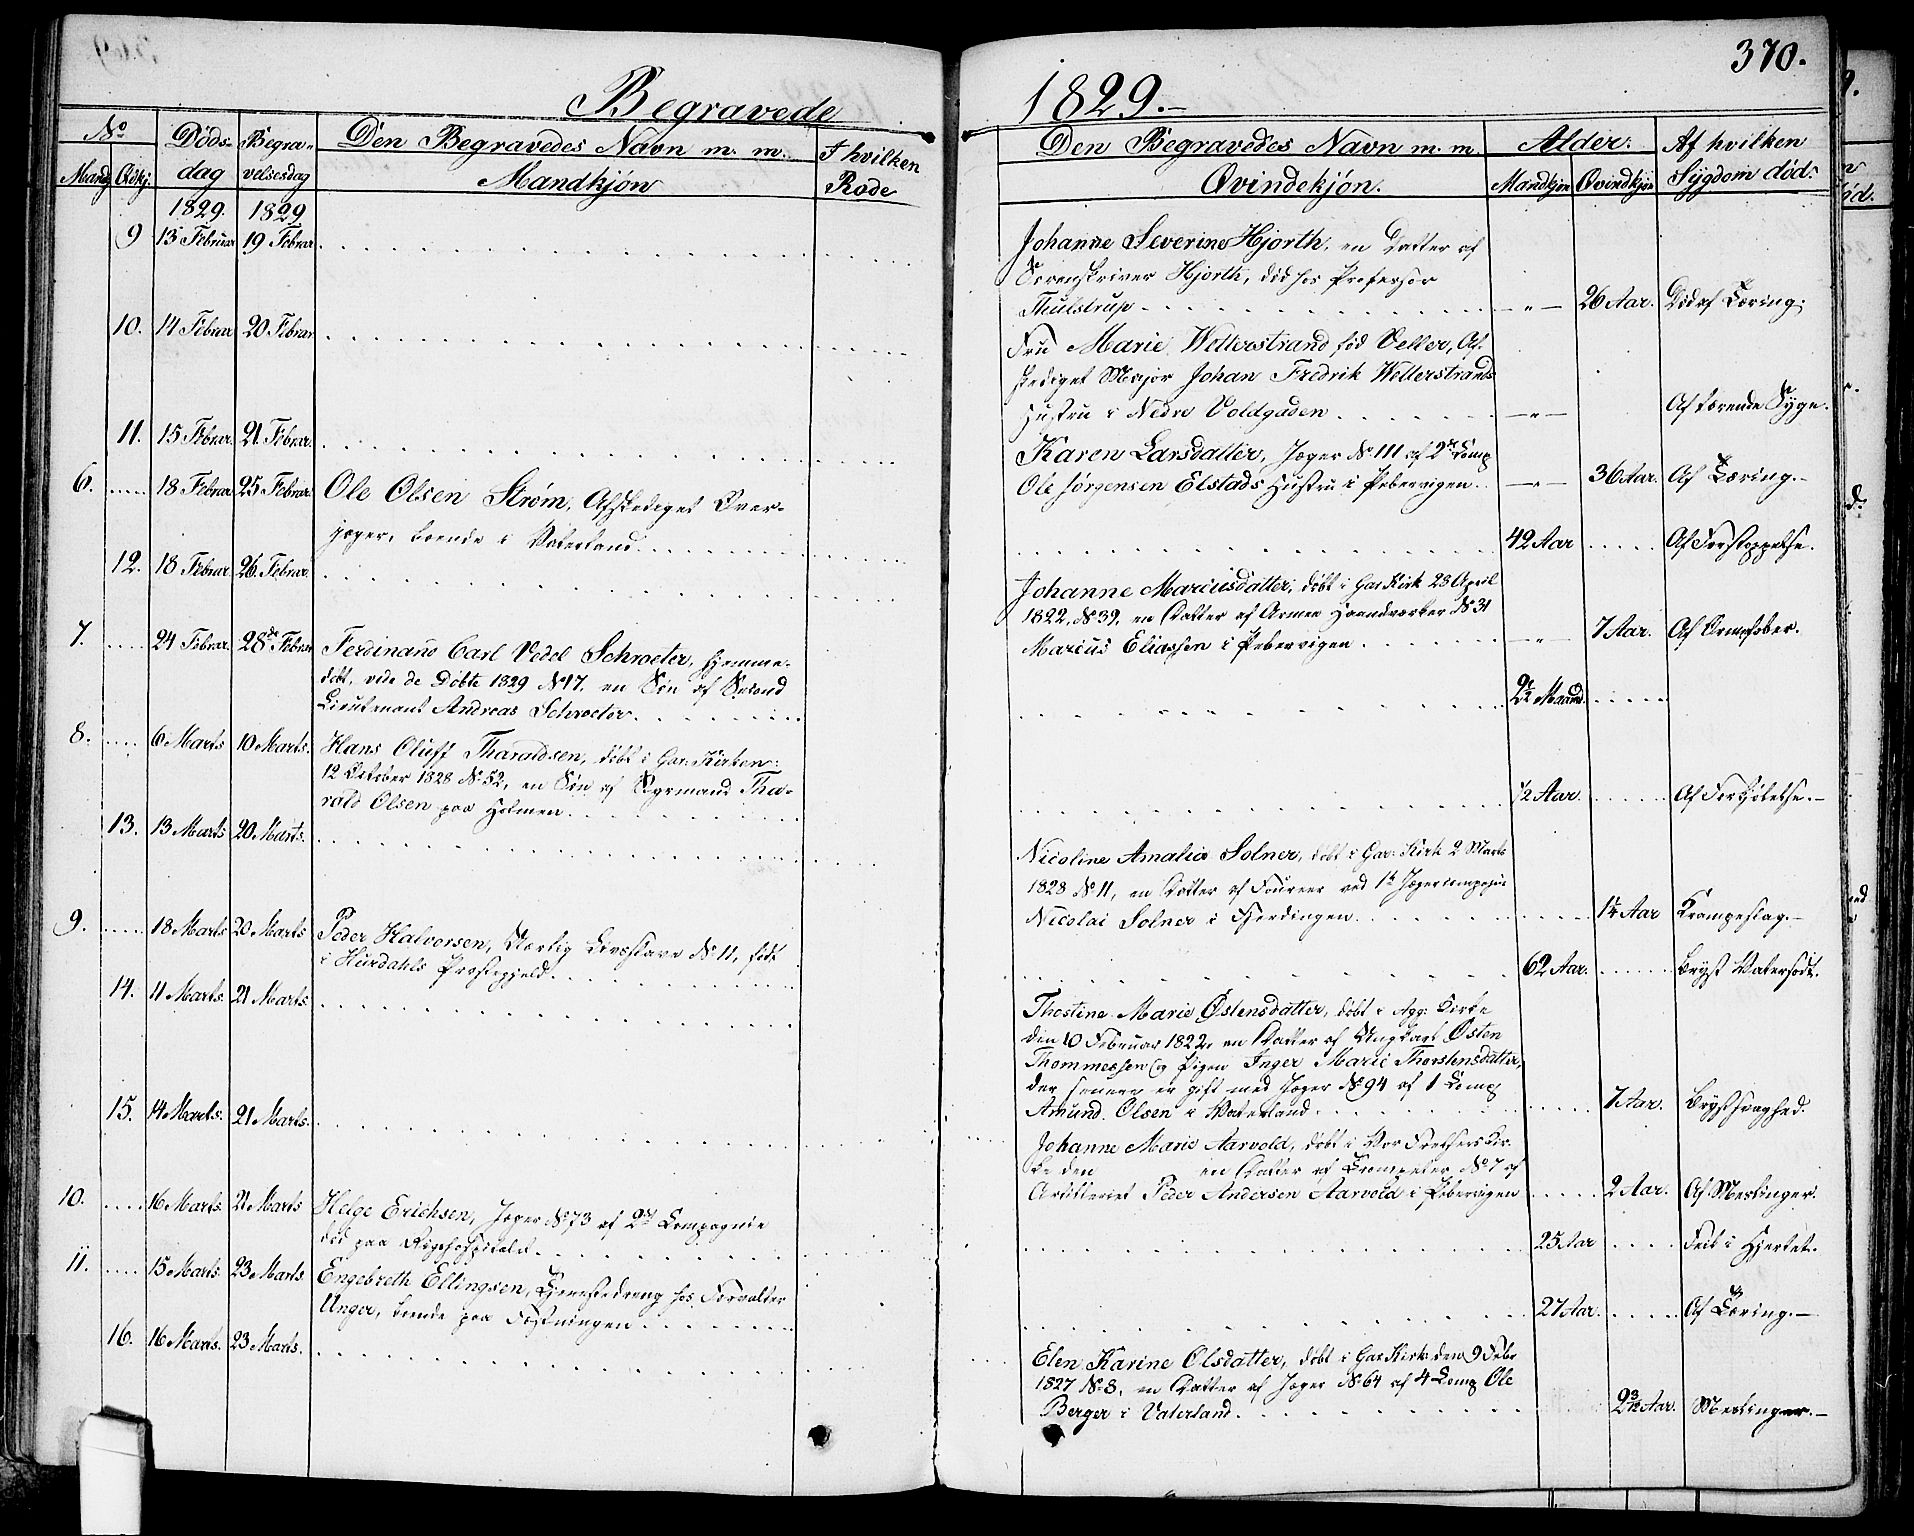 370.
Begravede 1829.
No
Mandkj. Qvdkj.
Døds-
dag
Begra-
velsesdag
Den Begravedes Navn m. m.
Mandkjøn
I hvilken
Rode
Den Begravedes Navn m. m.
Qvindekjøn.
Alder.
Mandkjøn Qvindkjøn
Af hvilken
Sÿgdom død.
1829. 1829
9 13 Februar 19 Febrar
Johanne Severine Hjorth, en Datter af
Sorenskriver Hjorth, død hos Professor
Thulstrup - " - 26 Aar. Død af Tæring.
10. 14 Februar 20 Februar
Fru Marie Wetterstrand fød Veller, Af-
skediget Major Johan Fredrik Wetterstrands
Hustru i Nedre Voldgaden - " - Af tærende Syge.
11. 15 Februar. 21. Februar.
Karen Larsdatter, Jæger No 111 af 2de Comp
Ole Jørgensen Elstads Hustru i Pebervigen. - " - 36 Aar. Af Tæring.-
6. 18 Februar 25 Februar. Ole Olsen Strøm, Afskediget Over-
jæger, boende i Vaterland. 42 Aar Af Forstoppelse.
12. 18 Februar. 26. Februar.
Johanne Marciusdatter, døbt i Gar Kirk 23 April
1822, No 39, en Datter af Armee Haandværker No 31
Marcius Eliassen i Pebervigen - " - 7 Aar. Af Ormefeber.
7. 24 Februar. 28de Februar Ferdinand Carl Vedel Schroeter, hjemme-
døbt, vide de Døbte 1829 No 17. en Søn af Second
Lieutenant Andreas Schroeter. Maaned.
8. 6 Marts 10 Marts. Hans Oluff Tharaldsen, døbt i Gar: Kirken.
12 October 1828 No 52, en Søn af Tha-
rald Olsen paa Holmen. 1/2 Aar. Af Forkjølelse.-
13. 13 Marts 20 Marts.
Nicoline Amalia Solner, døbt i Gar: Kirk 2 Marts
1828 No 11, en Datter af Foureer ved 1te Jægercompagnie
Nicolai Solner i Fjerdingen. Aar Krampeslag.-
9. 18 Marts 20 Marts Peder Halvorsen, Uærlig Livsslave No 11, født
i Hurdahls Præstegjeld. 62 Aar. Bryst Vatersodt.
14. 11 Marts. 21 Marts.
Thostine Marie Østensdatter, døbt i Agg: Kirke
den 10 Februar 1822, en Datter af Ungkarl Østen
Thommessen og Pigen Inger Marie Thorstensdatter,
der senere er gift med Jæger No 94 af 1 Comp
Amund Olsen i Vaterland. 7 Aar. Brystsvaghed.
15. 14 Marts. 21 Marts.
Johanne Marie Aarvold, døbt i Vor Frelsers Kir-
ke den en Datter af Trompeter No 7 af
Artilleriet Peder Andersen Aarvold i Pebervigen 2 Aar. Af Meslinger.
10. 16 Marts. 21 Marts Helge Erichsen, Jæger No 73 af 2det Compagnie
død paa Rigshospitalet. 25 Aar Feil i Hjertet.
11. 15 Marts. 23 Marts. Engebreth Ellingsen, Tjenestedreng hos Forvalter
Unger, boende paa Fæstningen 27 Aar. Af Tæring.-
16. 16 Marts. 23 Marts.
Elen Karine Olsdatter, døbt i Gar Kirk: den 9 Febr
1827 No 8, en Datter af Jæger No 64 af 4 Comp Ole
Berger i Vaterland. 2 3/12 Aar. Meslinger.-